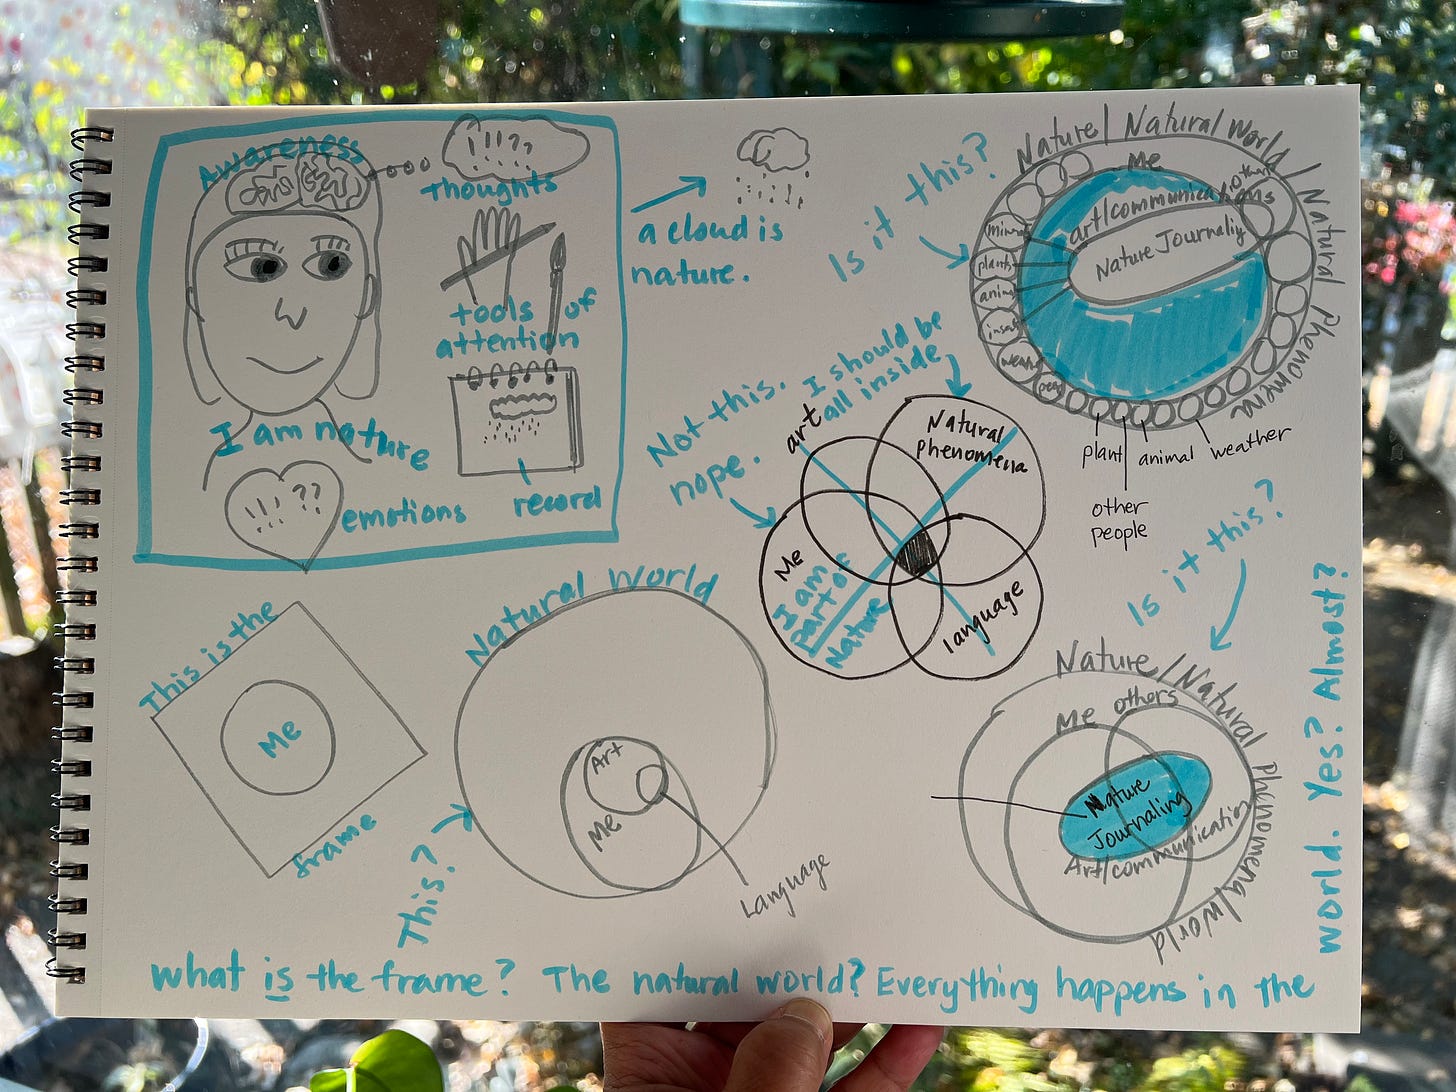 Awareness
thoughts
tools of
attention
record
I am nature
emotions
a cloud is
nature.
Is it this?
Nature/ Natural World/ Natural Phenomena
Me
other
art/communications
Nature Journaling
plants
plant
animal
weather
other
people
Not this.
nope.
I should be
all inside
art
Natural
phenomena
Me
I am
part of
Nature
language
Is it this?
Nature/Natural Phenomena/World
Me
others
Nature
Journaling
Art/communication
This is the
frame
Me
Natural World
Art
Me
Language
This?
what is the frame? The natural world? Everything happens in the
world. Yes? Almost?